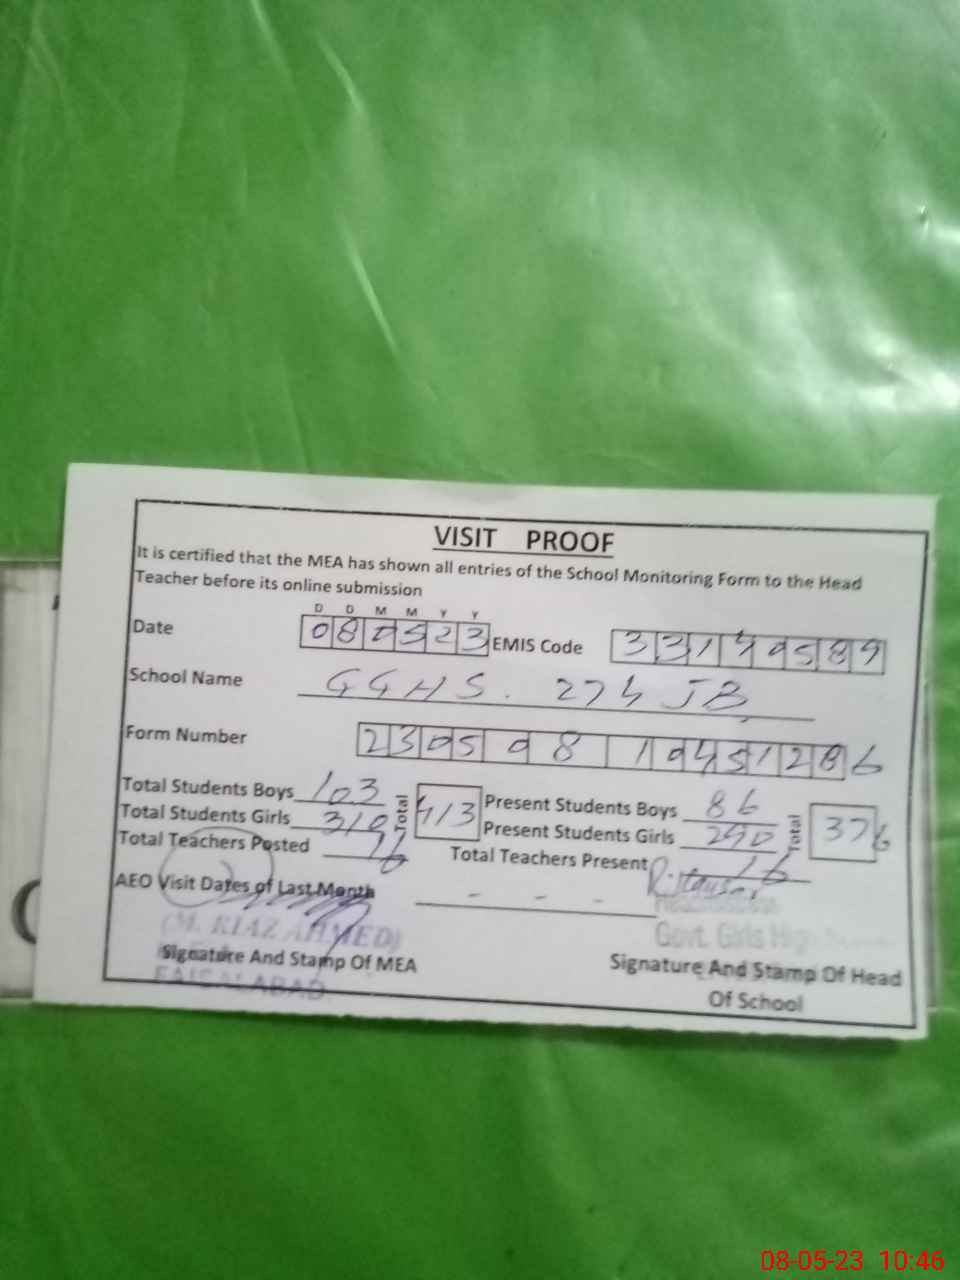 VISIT PROOF
It is certified that the MEA has shown all entries of the School Monitoring Form to the Head
Teacher before its online submission
D D M M Y Y
Date 080523 EMIS Code
School Name GGHS. 274 JB
Form Number
Total Students Boys 103 Total 413 Present Students Boys 86 Total 376
Total Students Girls 310 Present Students Girls 290
Total Teachers Posted 16 Total Teachers Present 16
AEO Visit Dates of Last Month - - -
(M. RIAZ AHMED)
Govt. Girls High
Signature And Stamp Of MEA Signature And Stamp Of Head
Of School
FAISALABAD.
08-05-23 10:46